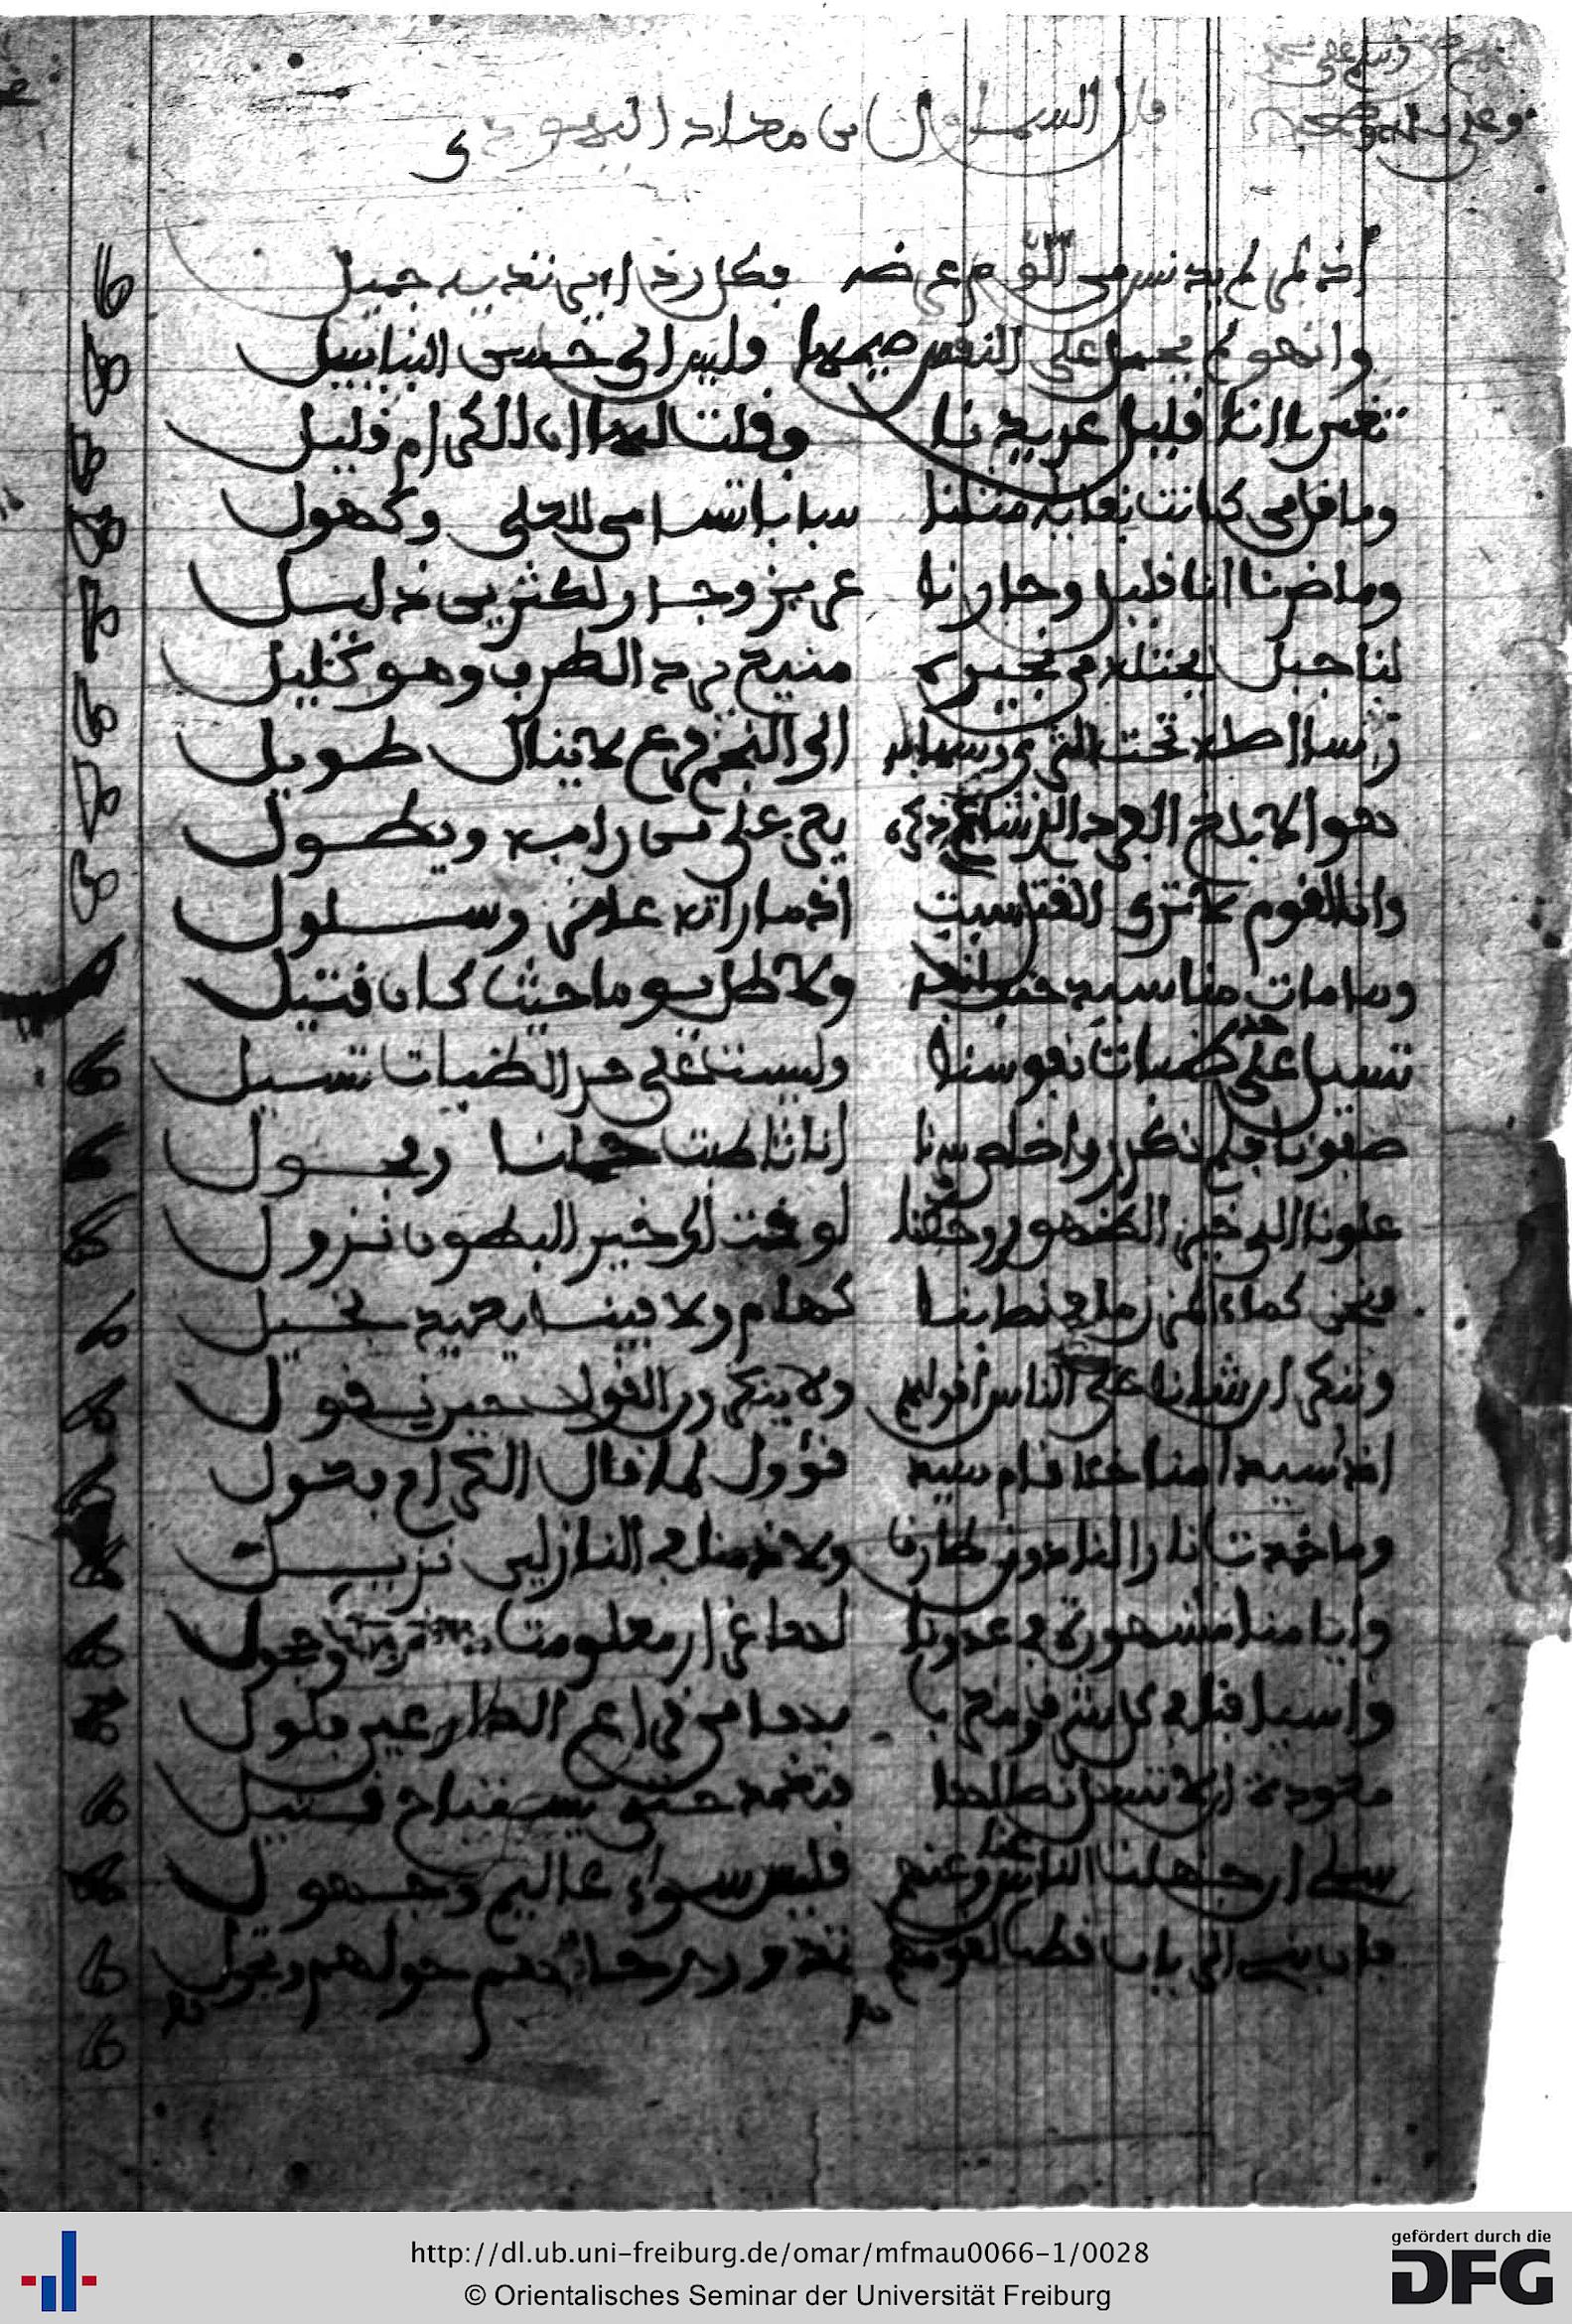 وسلم على محمد
وعلى اله وصحبه
قال السموال ابن معداد اليهودي
اذ لمر لم يدنس من اللوم عرضه فكل رذا يرتديه جميل
وان هو لم يحمل على النفس ضيمها وليس الى حسن الثنا سبيل
تعيرنا انا قليل عديدنا وقلت لها ان الكرام قليل
وما قل من كانت بقاياه مثلنا سباب تسامى للعلى وكهول
وما ضرنا انا قليل وجارنا عزيز وجار لكثرين ذليل
لنا جبل يحتله من نجيره منيع يرد الطرف وهو كليل
رسا اصله تحت الثرى وسما به الى النجم فرع لا ينال طويل
هو الابلق الفرد الذي شاع ذكره يعز على من رامه ويطول
وانا لقوم لا نرى القتل سبت اذ ما راته عامر وسلول
وما مات منا سيد حتف انفه ولا طل يوما حيث كان قتيل
تسيل على حد ظبات نفوسنا وليست على حد الظبات تسيل
صفونا فلم نكدر واخلص سرنا اناث اطبت حملنا وفحول
علونا الى خير الظهور وحطنا لوقت الى خير البطون نزول
فنحن كماء المزن ما في نصابنا كهام ولا فينا يعيد بخيل
وننكر ان شئنا على الناس قولهم ولا ينكرون القول حين نقول
اذ سيد منا خلا قام سيد قؤول لما قال الكرام فعول
وما خمدت نار النا دون طارق ولا ذمنا في النازلين نزيل
وايامنا مشهورة في عدونا لها غرار معلومت وحجول
واسيافنا في كل شرق ومغرب بها من قراع الدارعين فلول
معودة ان لا تسل نصالها فتغمد حتى يستباح قتيل
سلي ان جهلت الناس عنا وعنهم فليس سواء عالم وجهول
فان بني الريان قطب لقومهم تدور رحاهم حولهم وتجول
http://dl.ub.uni-freiburg.de/omar/mfmau0066-1/0028
© Orientalisches Seminar der Universität Freiburg
gefördert durch die
DFG